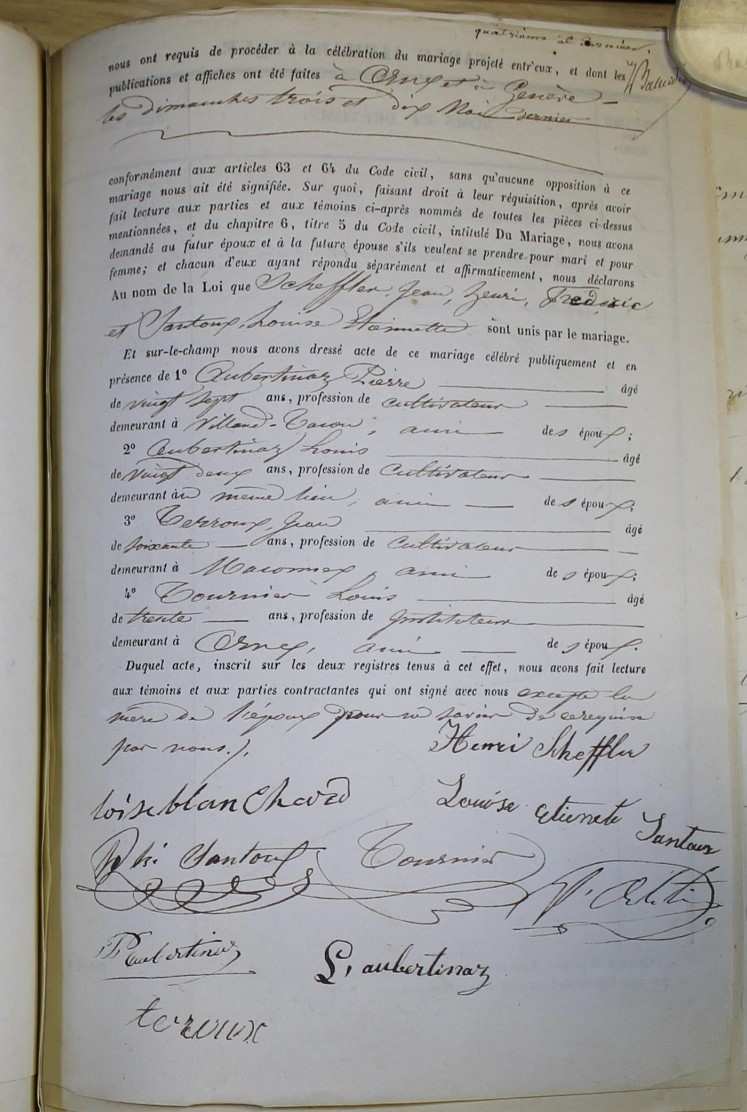 quatrième et dernier,
nous ont requis de procéder à la célébration du mariage projeté entr'eux, et dont les
publications et affiches ont été faites à Ornex et à Genève
les dimanches trois et dix Mai dernier
conformément aux articles 63 et 64 du Code civil, sans qu'aucune opposition à ce
mariage nous ait été signifiée. Sur quoi, faisant droit à leur réquisition, après avoir
fait lecture aux parties et aux témoins ci-après nommés de toutes les pièces ci-dessus
mentionnées, et du chapitre 6, titre 5 du Code civil, intitulé Du Mariage, nous avons
demandé au futur époux et à la future épouse s'ils veulent se prendre pour mari et pour
femme; et chacun d'eux ayant répondu séparément et affirmativement, nous déclarons
Au nom de la Loi que Scheffler, Jean, Henri, Fredéric
et Santoux, Louise Etiennette sont unis par le mariage.
Et sur-le-champ nous avons dressé acte de ce mariage célébré publiquement et en
présence de 1° Aubertinaz Pierre âgé
de vingt sept ans, profession de cultivateur
demeurant à Villard-Tacon, ami des époux;
2° Aubertinaz Louis âgé
de vingt deux ans, profession de Cultivateur
demeurant au même lieu, ami des époux;
3° Terroux, Jean âgé
de soixante ans, profession de Cultivateur
demeurant à Maconnex, ami des époux;
4° Tournier Louis âgé
de trente ans, profession de Instituteur
demeurant à Ornex, ami des époux.
Duquel acte, inscrit sur les deux registres tenus à cet effet, nous avons fait lecture
aux témoins et aux parties contractantes qui ont signé avec nous excepté la
mère de l'époux pour ne savoir de ce requise
par nous.
Henri Scheffler
loise blanchard
Louise etienete Santoux
Santoux Tournier
Paubertinaz
L, aubertinaz
teroux